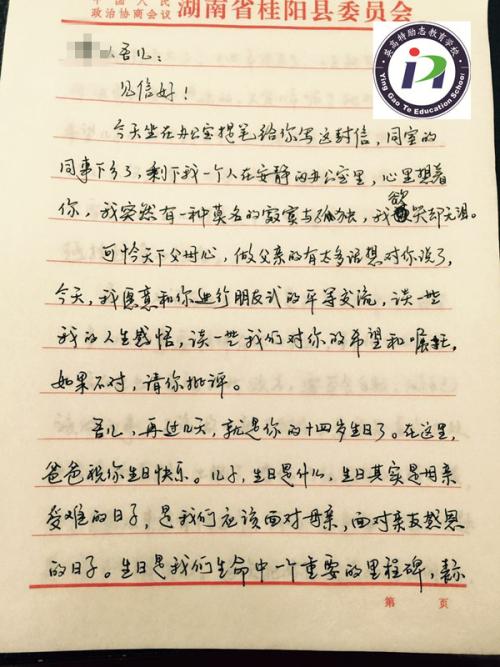 中国人民
政治协商会议 湖南省桂阳县委员会
英高特励志教育学校
Ying Gao Te Education School
吾儿：
见信好！
今天坐在办公室提笔给你写这封信，同室的
同事下乡了，剩下我一个人在安静的办公室里，心里想着
你，我突然有一种莫名的寂寞与孤独，我欲哭却无泪。
可怜天下父母心，做父亲的有太多话想对你说了，
今天，我愿意和你进行朋友式的平等交流，谈一些
我的人生感悟，谈一些我们对你的希望和嘱托，
如果不对，请你批评。
吾儿，再过几天，就是你的十四岁生日了。在这里，
爸爸祝你生日快乐。儿子，生日是什么，生日其实是母亲
受难的日子，是我们应该面对母亲，面对亲友感恩
的日子。生日是我们生命中一个重要的里程碑，标
第 页